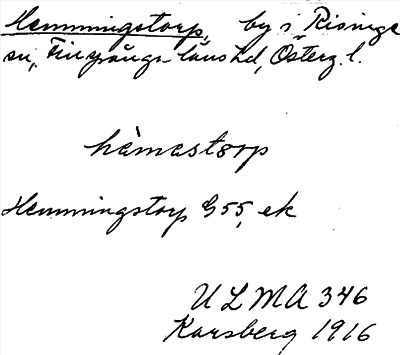 Hemmingstorp, by i Risinge
sn, Finspånga läns hd, Österg. l.
hèmastorp
Hemmingstorp G 55, ek
ULMA 346
Karsberg 1916